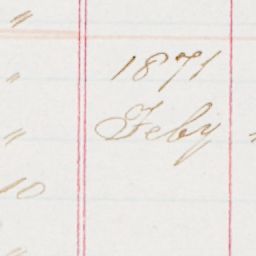 "
" 1871
" Feby "
10
"